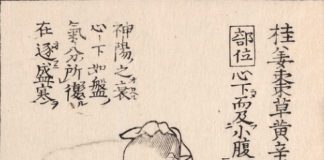 桂姜棗草黄辛
部位
心下而及小腹
神陽之衰
心下如盤
氣分所復
在逐盛寒